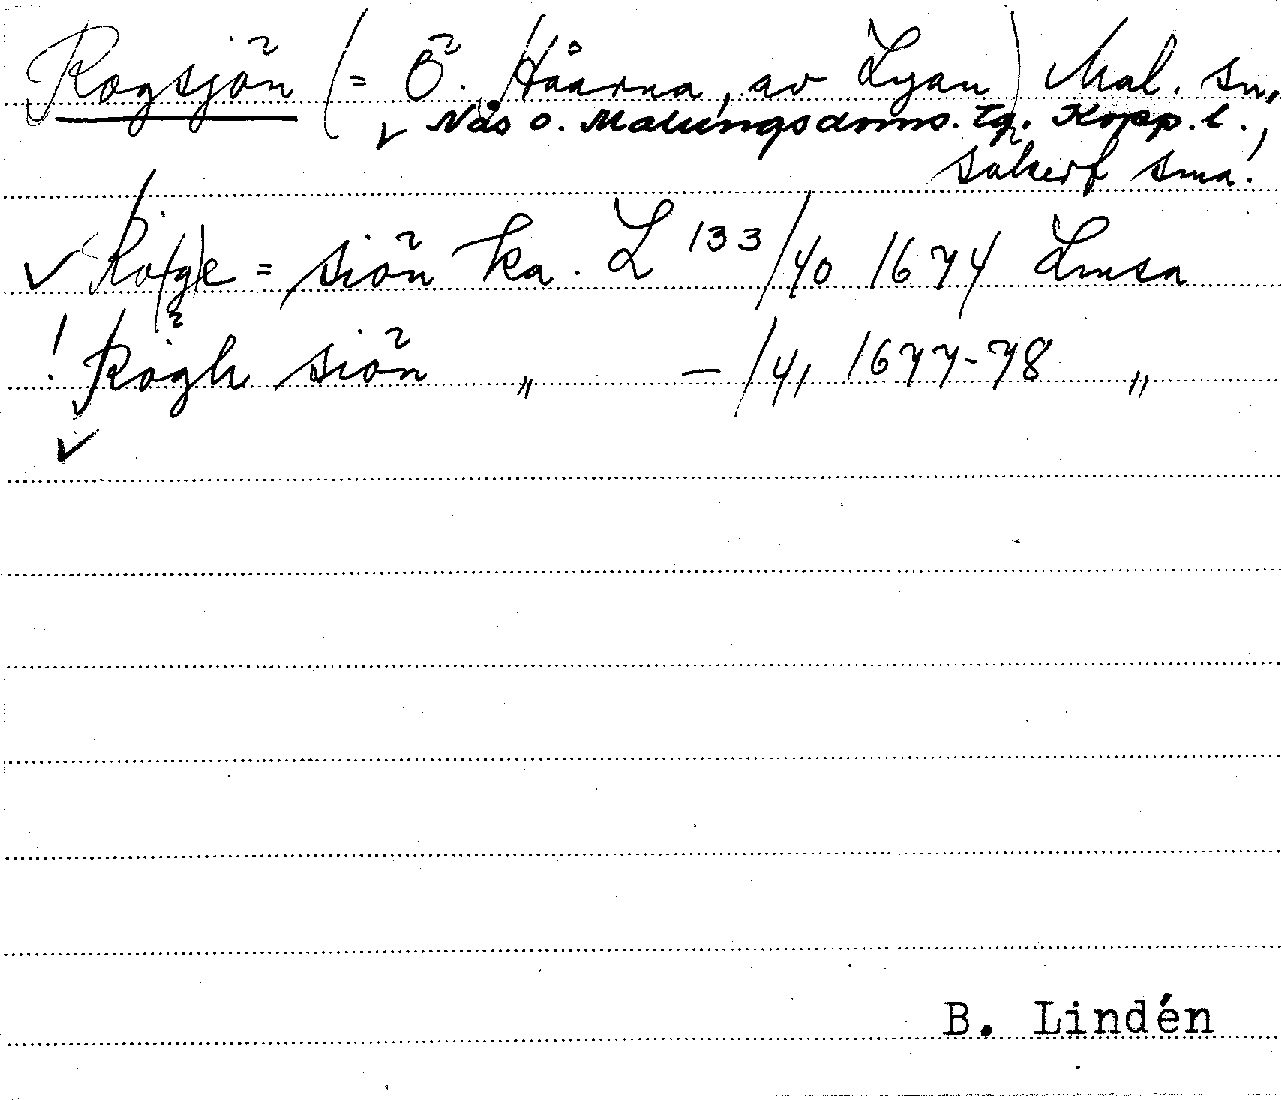 Rogsjön (= Ö. Håarna, av Lyan) Mal. sn,
Nås o. Malungsdoms. tg. Kopp. l.,
säkert sma!
Ro(g)e = siön ka. L 133/40 1674 Lmsa
! Rogh siön „ — /41 1677-78 „
B. Lindén